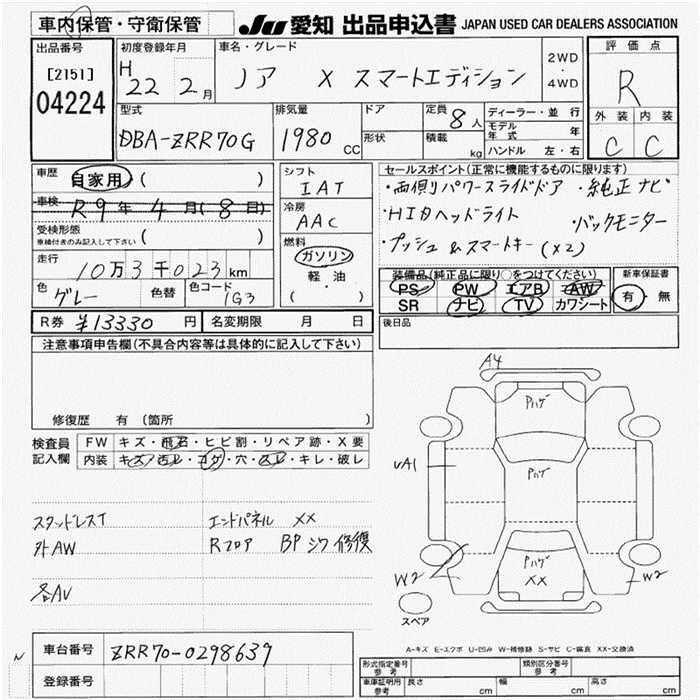 車内保管・守衛保管 JU 愛知 出品申込書 JAPAN USED CAR DEALERS ASSOCIATION
出品番号 初度登録年月 車名・グレード 評価点
[2151] H 22 2月 ノア X スマートエディション 2WD・4WD R
04224
型式 排気量 ドア 定員 8人 ディーラー・並行 外装 内装
DBA-ZRR70G 1980 CC 形状 積載 kg モデル年式 年 C C
ハンドル 左・右
車歴 自家用 ( ) シフト IAT セールスポイント(正常に機能するものに限ります)
車検 R9年 4月(8日) ・両側パワースライドドア ・純正ナビ
受検形態 ( ) 冷房 AAC ・HIDヘッドライト ・バックモニター
車検付きのみ記入して下さい
走行 10万3千023km 燃料 ガソリン ・プッシュ&スマートキー(×2)
軽・油
( )
色 グレー 色替 色コード 1G3 装備品(純正品に限り○をつけてください) 新車保証書
PS PW エアB AW 有・無
SR ナビ TV カワシート
R券 ¥13330円 名変期限 月 日 後日品
注意事項申告欄(不具合内容等は具体的に記入して下さい)
修復歴 有 (箇所 )
検査員記入欄 FW キズ・飛石・ヒビ割・リペア跡・X要
内装 キズ・汚レ・コゲ・穴・スレ・キレ・破レ
スタッドレスT エンドパネル XX
外AW Rフロア BP シワ 修復
各AU
A4
Pハゲ
UA1
Pハゲ
W2 Pハゲ W2
XX
スペア
A-キズ E-エクボ U-凹み W-補修跡 S-サビ C-腐食 XX-交換済
車台番号 ZRR70-0298639
登録番号
形式指定番号 参考 類別区分番号 参考
車庫証明用 参考 長さ cm 幅 cm 高さ cm